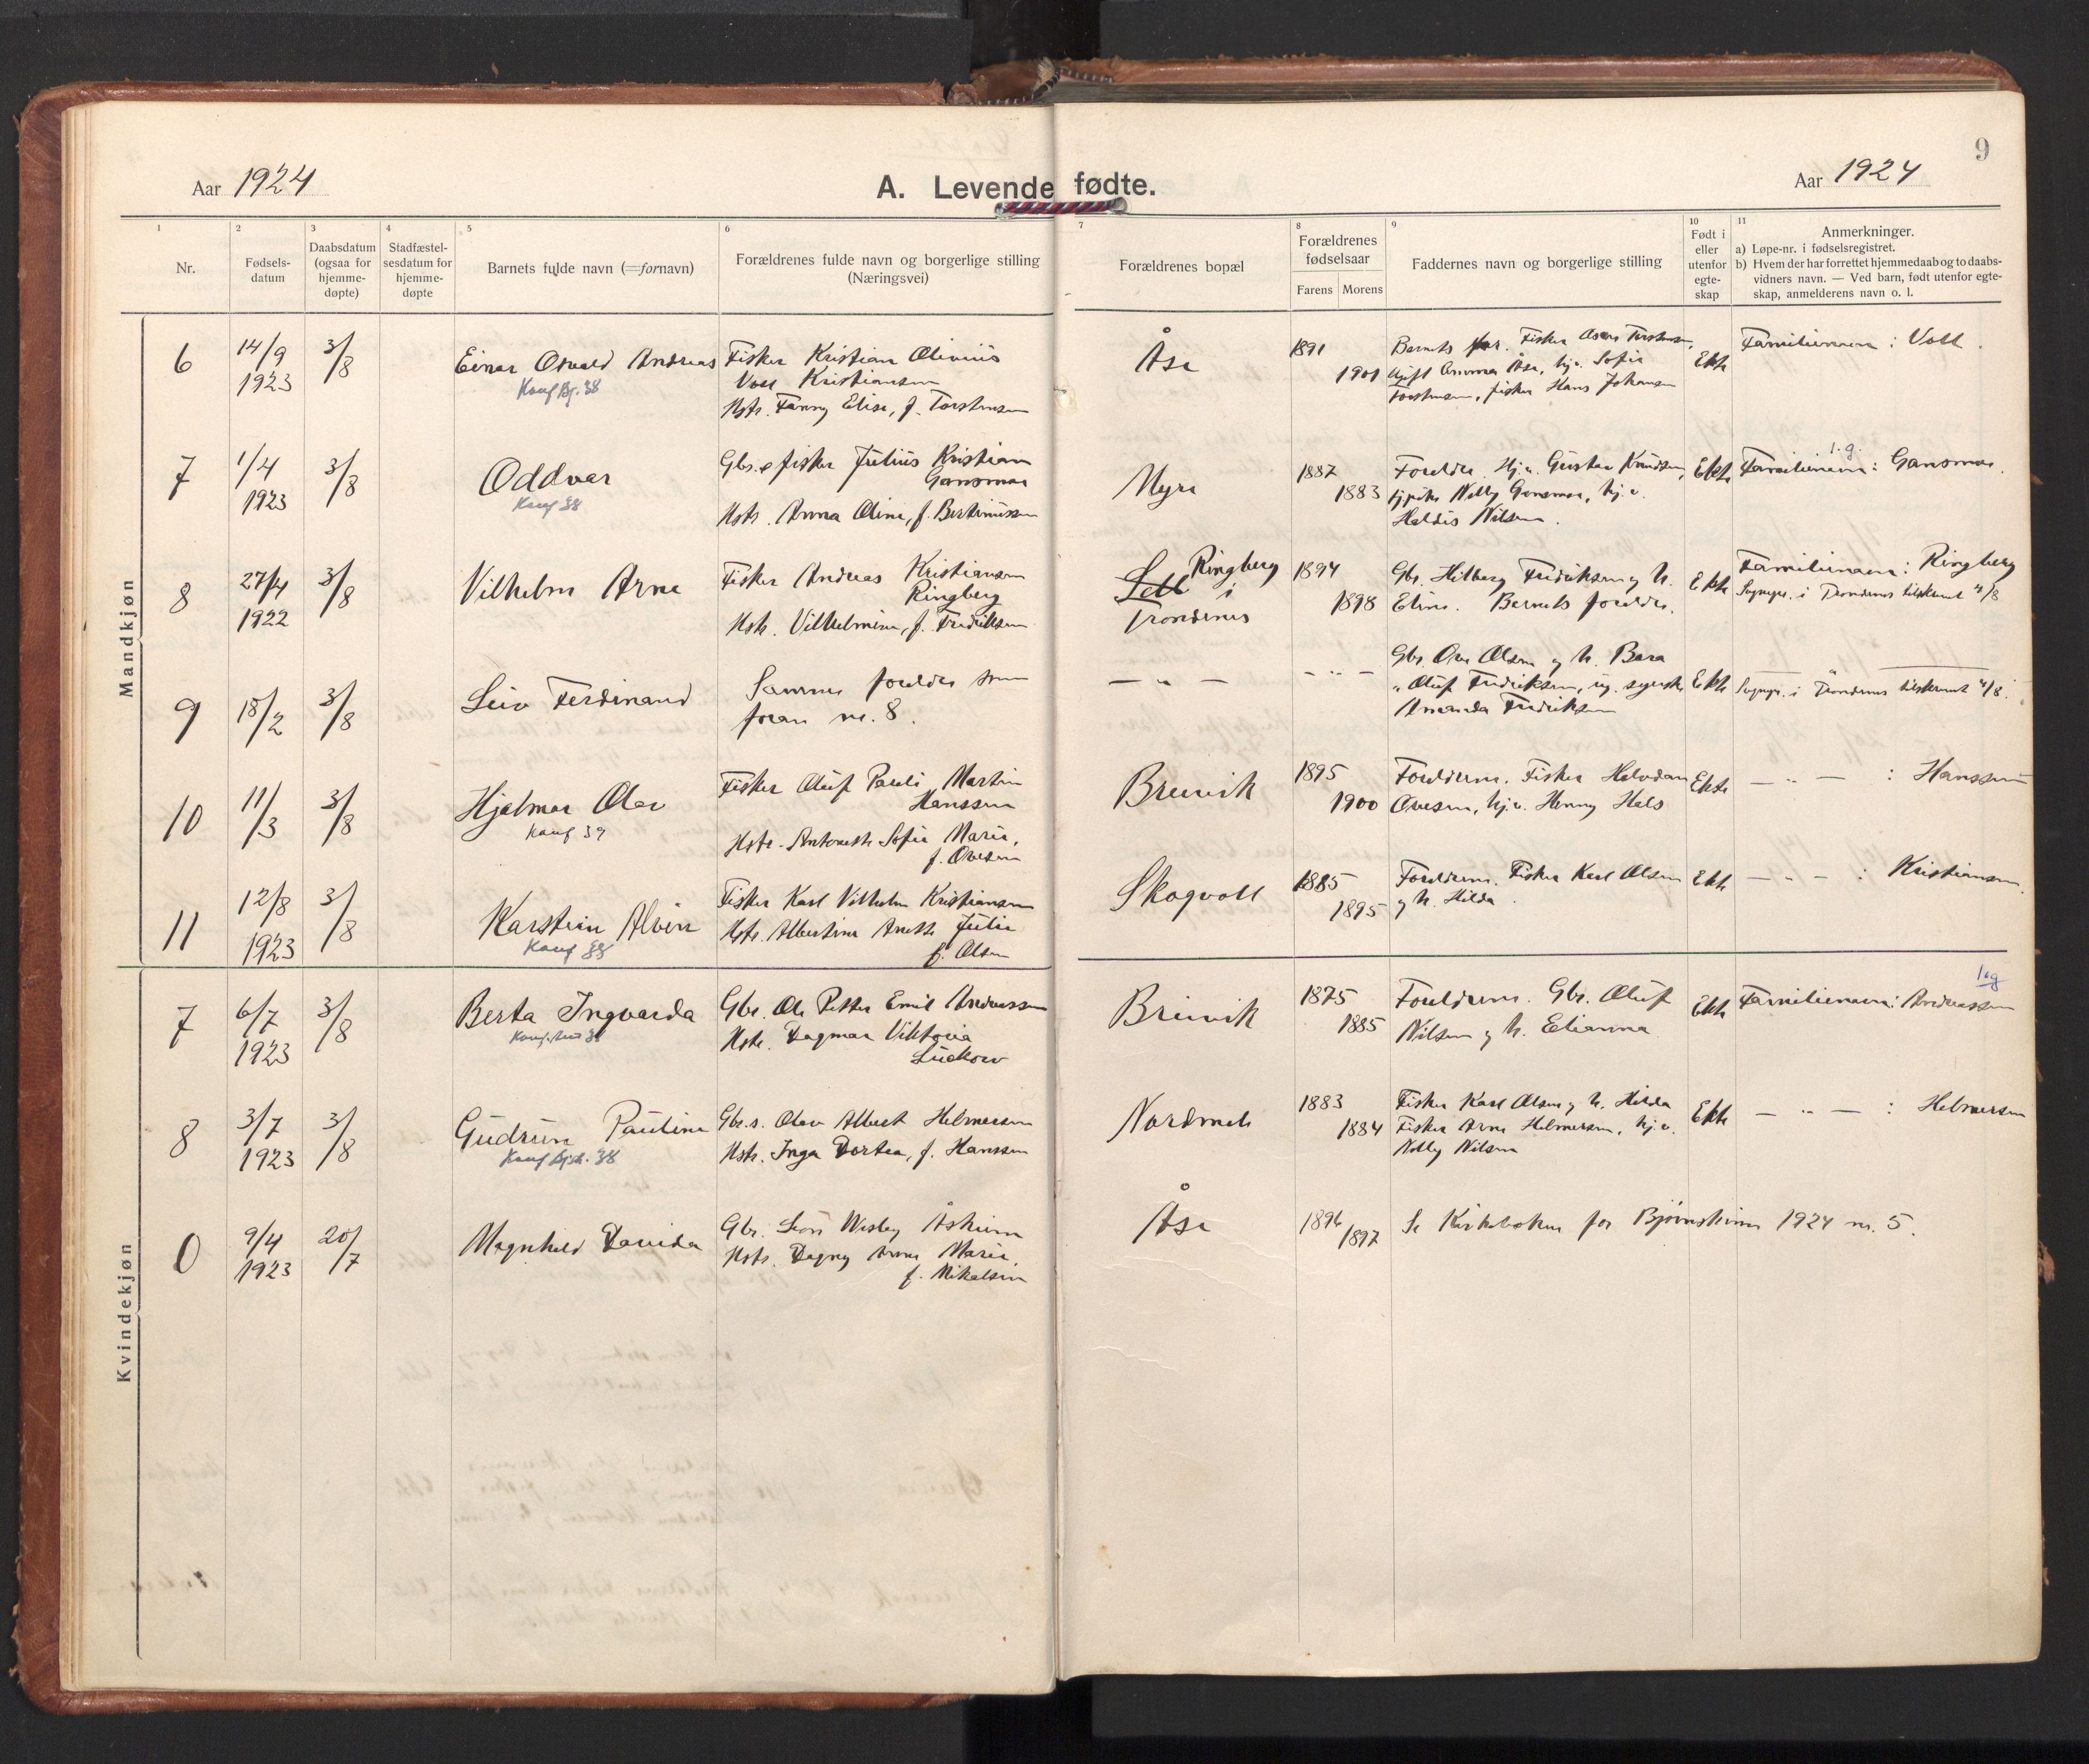 9
Aar 1924
A. Levende fødte.
Aar 1924
1 2 3 4 5 6 7 8 9 10 11
Nr.
Fødsels-
datum
Daabsdatum
(ogsaa for
hjemme-
døpte)
Stadfæstel-
sesdatum for
hjemme-
døpte
Barnets fulde navn (=fornavn)
Forældrenes fulde navn og borgerlige stilling
(Næringsvei)
Forældrenes bopæl
Forældrenes
fødselsaar
Farens Morens
Faddernes navn og borgerlige stilling
Født i
eller
utenfor
egte-
skap
Anmerkninger.
a) Løpe-nr. i fødselsregistret.
b) Hvem der har forrettet hjemmedaab og to daabs-
vidners navn. — Ved barn, født utenfor egte-
skap, anmelderens navn o. l.
Mandkjøn
6
14/9
1923
3/8
Einar Osvald Andreas
Konf Bj. 38
Fisker Kristian Olinius
Voll Kristiansen
Hstr. Fanny Elise, f. Torstensen
Åse
1891
1901
Barnets far. Fisker Torstensen,
Ugift Åse, hj.v. Sofie
Torstensen, fisker Hans Johansen
Ekte
Familienavn: Voll.
7
1/4
1923
3/8
Oddvar
Konf 38
Gbr. & fisker Julius Kristian
Gansmoe
Hstr. Anna Oline, f. Bertinussen
Myre
1887
1883
Foreldre. Hj.v. Gustav Knudsen,
Nelly Gansmoe, hj.v.
Haldis Nilsen.
Ekte
1.g.
Familienavn: Gansmoe.
8
27/4
1922
3/8
Vilhelm Arne
Fisker Andreas Kristiansen
Ringberg
Hstr. Vilhelmine, f. Fredriksen
Ringberg
i
Trondenes
1894
1898
Gbr. Hilberg Fredriksen og h.
Eline. Barnets foreldre.
Ekte
Familienavn: Ringberg
Sogngpr. i Trondenes tilskrevet 4/8
9
18/2
3/8
Leiv Ferdinand
Samme foreldre som
foran nr. 8.
— " —
- " -
Gbr. Ole Olsen og h. Bera
" Oluf Fredriksen, ug. syerske
Amanda Fredriksen
Ekte
— " —
Sogngpr. i Trondenes tilskrevet 4/8.
10
11/3
3/8
Hjalmar Olav
Konf 39
Fisker Oluf Pauli Martin
Hanssen
Hstr. Antonette Sofie Marie,
f. Ovesen
Breivik
1895
1900
Foreldrene. Fisker Halvdan
Ovesen, hj.v. Henny Hals
Ekte
— " — : Hanssen
11
12/8
1923
3/8
Karstein Alvin
Konf 38
Fisker Karl Vilhelm Kristiansen
Hstr. Albertine Anette Julie
f. Olsen
Skogvoll
1885
1895
Foreldrene. Fisker Karl Olsen
og h. Hilda.
Ekte
— " — : Kristiansen.
Kvindekjøn
7
6/7
1923
3/8
Berta Ingvarda
Gbr. Ole Petter Emil Andreassen
Hstr. Dagmar Viktoria
Luckow
Breivik
1875
1885
Foreldrene. Gbr. Oluf
Nilsen og h. Elianna
Ekte
1.g
Familienavn: Andreassen
8
3/7
1923
3/8
Gudrun Pauline
Gbr.s. Olav Albert Helmersen
Hstr. Inga Dortea, f. Hanssen
Nordmela
1883
1884
Fisker Karl Olsen og h. Hilda
Fisker Arne Helmersen, hj.v.
Nelly Nilsen
Ekte
— " — : Helmersen
0
9/4
1923
20/7
Magnhild Davida
Gbr. Leon Wesley Åsheim
Hstr. Dagny Anna Marie
f. Mikalsen
Åse
1896
1897
Se Kirkeboken for Bjørnskinn 1924 nr. 5.